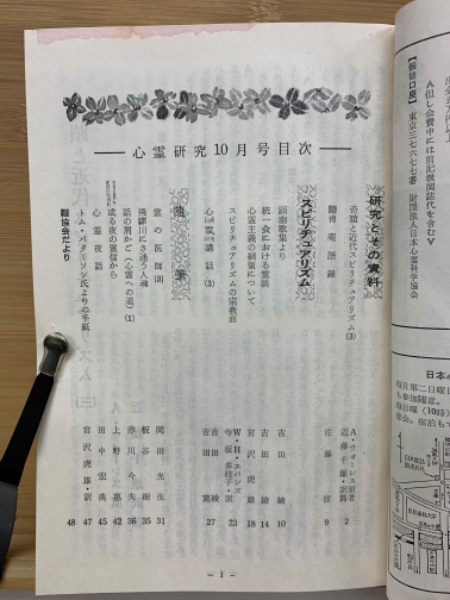 【振替口座】 東京三七六七番 財団法人日本心霊科学協会
A但し会費中には前記機関誌代を含むV
日本心
毎月第二日曜日
も参加随意。
毎日曜(10時)
心霊研究10月号目次
研究とその資料
奇蹟と近代スピリチュアリズム(3) A・ウォーレス原著 近藤千雄・訳 2
青庵語録 9
スピリチュアリズム
幽歌集より 吉田綾 10
統一会における霊談 吉田綾 14
心霊主義の綱領について 宮沢虎雄 18
スピリチュアリズムの宗教面 W・H・エバンズ 寺坂多枝子・訳 23
心霊講話(3) 吉田綾 吉田寛 27
随筆
霊の医師(3) 岡田光生 31
飛騨川にさ迷う人魂 板谷樹 35
話の屑かご(心霊への道)(1) 赤川今夫 36
或る夜の霊信から 上野惠 42
心霊夜話 田中宏 45
トム・パタソン氏よりの手紙 宮沢虎雄・訳 47
協会だより 48
— 1 —